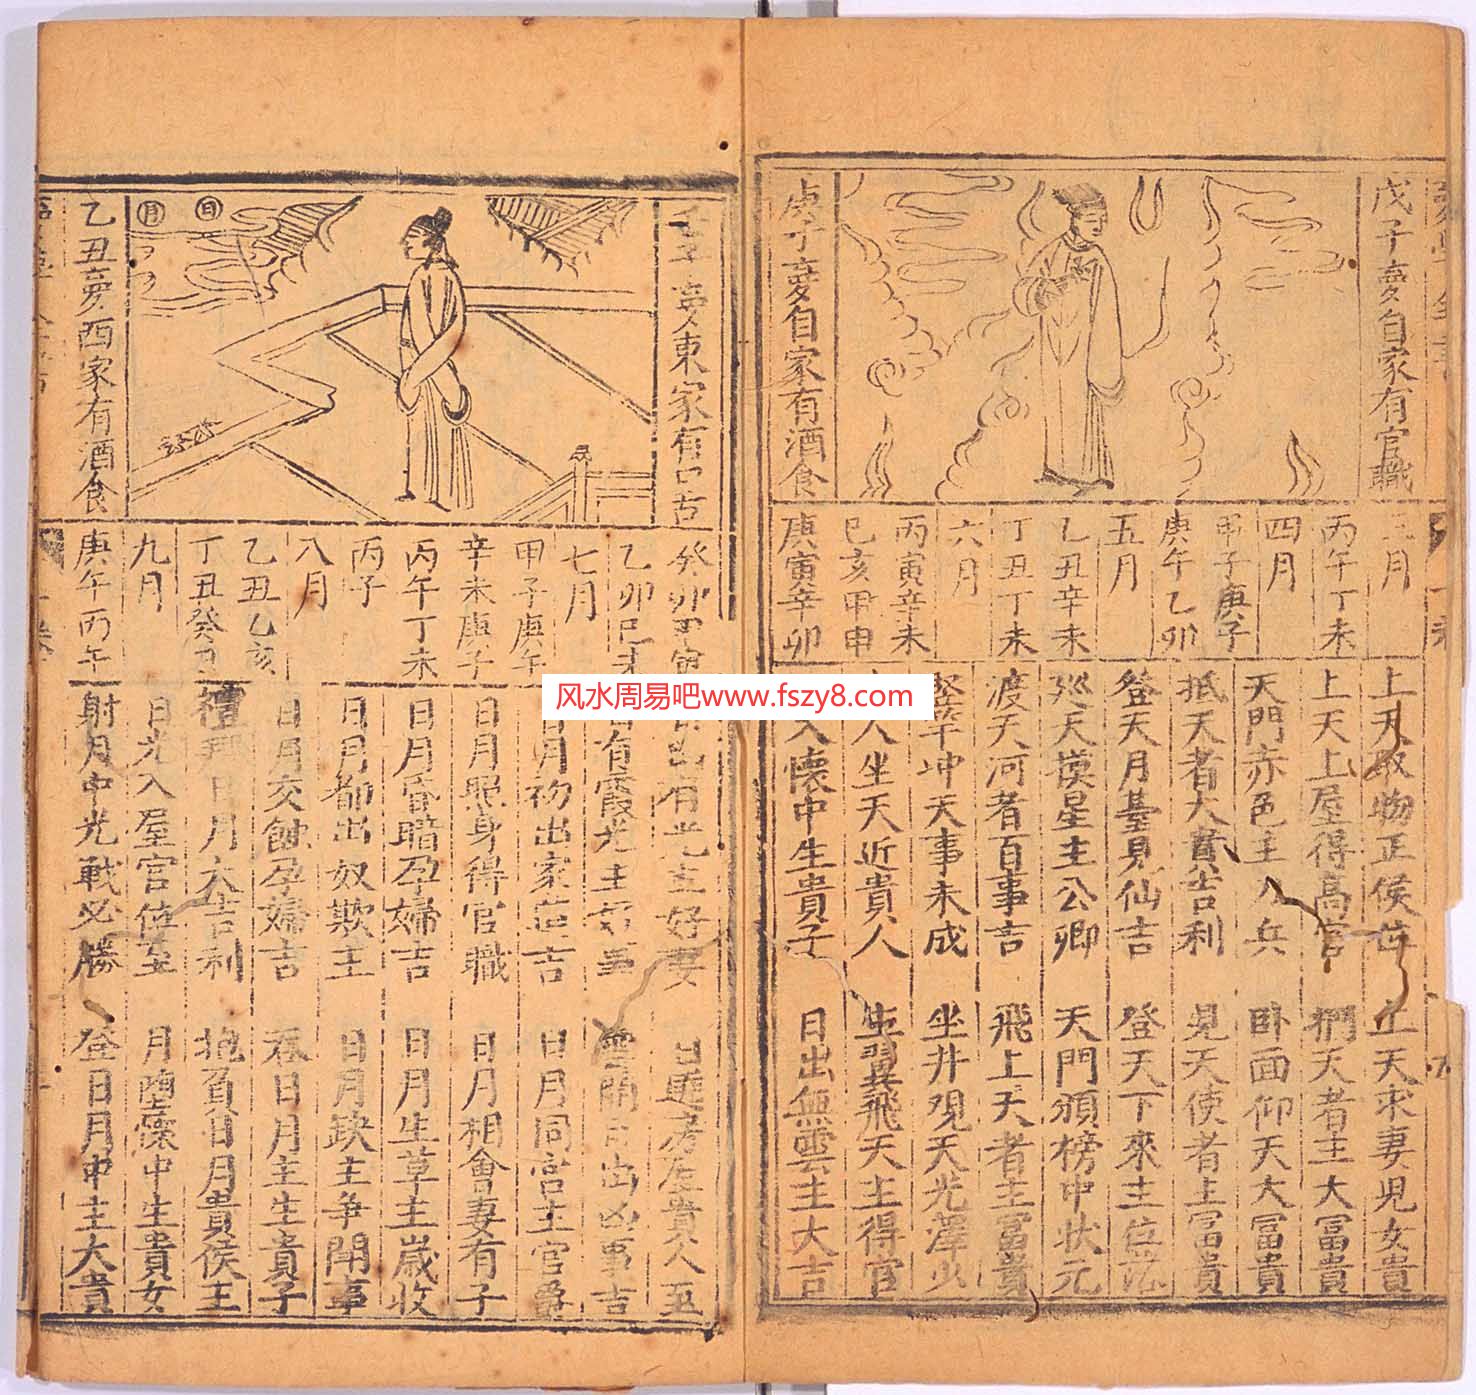 戊子夢自家有官職
庚子夢自家有酒食
三月
丙午丁未
四月
甲子庚子
庚午乙卯
五月
乙丑辛未
丁丑丁未
六月
丙寅辛未
已亥甲申
庚寅辛卯
上天取物正侯位
上天求妻兒女貴
上天上屋得高官
捫天者主大富貴
天門赤色主八兵
卧面仰天大富貴
抵天者大貴吉利
見天使者上冨貴
登天月臺見仙吉
登天下來主位
巡天摸星主公卿
天門頒榜中状元
渡天河者百事吉
飛上天者主冨貴
乾坤天事未成
坐井观天光澤少
人坐天近貴人
生翼飛天主得官
入懷中生貴子
日出無雲主大吉
風水周易吧www.fszy8.com
子夢東家有口舌
日
月
乙丑夢西家有酒食
癸卯甲寅
乙卯已未
七月
甲子庚午
辛未庚子
丙午丁未
丙子
八月
乙丑乙亥
丁丑癸丑
九月
庚午丙午
出有光主好妻
日進房屋貴人至
有霞光主好事
雲開日出凶事吉
日月初出家道吉
日月同宫主官爵
日月照身得官職
日月相會妻有子
日月昏暗孕婦吉
日月生草主歲收
日月都出奴欺主
日月缺主争鬧事
日月交蝕孕婦吉
吞日月主生貴子
禮拜日月大吉利
抱負日月貴侯王
日光入屋官位至
月墮懷中生貴女
射月中光戰必勝
登日月中主大貴